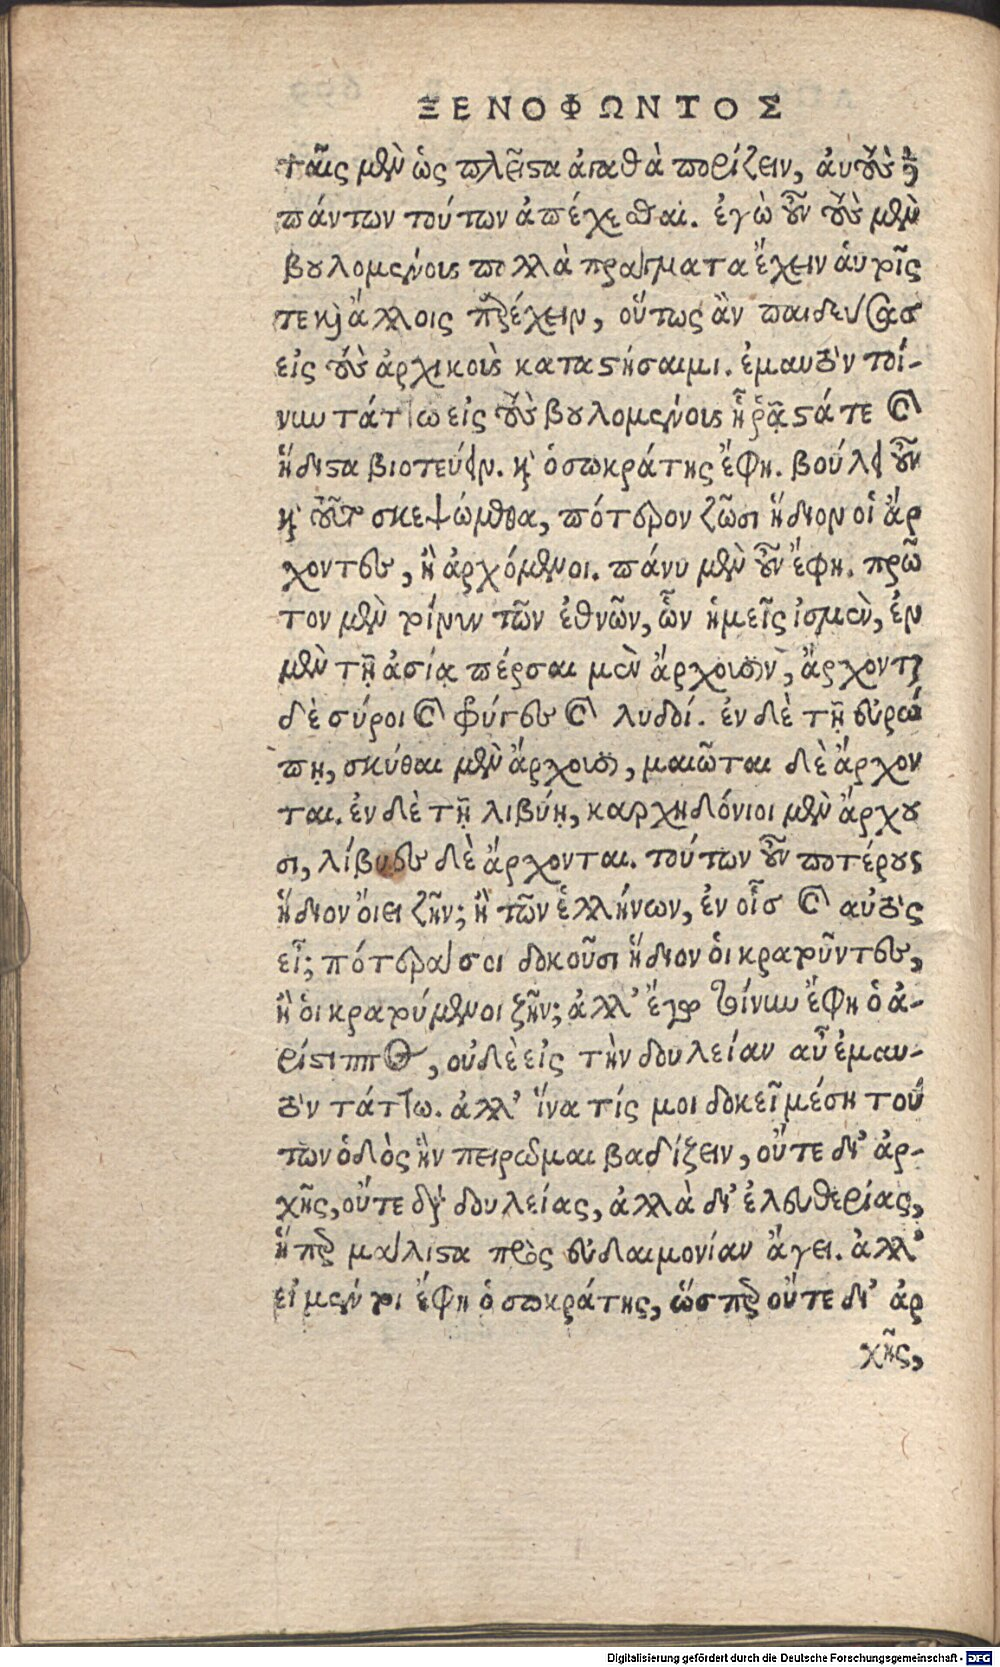 ΞΕΝΟΦΩΝΤΟΣ
ταῖς μὲν ὡς πλεῖστα ἀγαθὰ πορίζειν, αὐτοὺς δὲ
πάντων τούτων ἀπέχεσθαι. ἐγὼ οὖν τοὺς μὲν
βουλομένους πολλὰ πράγματα ἔχειν αὑτοῖς
τε καὶ ἄλλοις παρέχειν, οὕτως ἂν παιδεύσας
εἰς τοὺς ἀρχικοὺς καταστήσαιμι. ἐμαυτὸν τοί-
νυν τάττω εἰς τοὺς βουλομένους ᾗ ῥᾷστά τε καὶ
ἥδιστα βιοτεύειν. καὶ ὁ σωκράτης ἔφη. βούλει οὖν
καὶ τοῦτο σκεψώμεθα, πότερον ζῶσι ἥδιον οἱ ἄρ
χοντες, ἢ ἀρχόμενοι. πάνυ μὲν οὖν ἔφη. πρῶ
τον μὲν τοίνυν τῶν ἐθνῶν, ὧν ἡμεῖς ἰσμὲν, ἐν
μὲν τῇ ἀσίᾳ πέρσαι μὲν ἄρχουσιν, ἄρχονται
δὲ σύροι καὶ φρύγες καὶ λυδοί. ἐν δὲ τῇ εὐρώ
πῃ, σκύθαι μὲν ἄρχουσι, μαιῶται δὲ ἄρχον
ται. ἐν δὲ τῇ λιβύῃ, καρχηδόνιοι μὲν ἄρχου
σι, λίβυες δὲ ἄρχονται. τούτων οὖν ποτέρους
ἥδιον ὄιει ζῆν; ἢ τῶν ἑλλήνων, ἐν οἷς καὶ αὐτὸς
εἶ; πότεροί σοι δοκοῦσι ἥδιον ὁι κρατοῦντες,
ἢ ὁι κρατούμενοι ζῆν; ἀλλ' ἔγω τοίνυν ἔφη ὁ ἀ-
ρίστιππος, οὐδὲ εἰς τὴν δουλείαν αὖ ἐμαυ-
τὸν τάττω. ἀλλ' ἵνα τίς μοι δοκεῖ μέση τού
των ὁδὸς ἣν πειρῶμαι βαδίζειν, οὔτε δι' ἀρ-
χῆς, οὔτε διὰ δουλείας, ἀλλὰ δι' ἐλευθερίας,
ἥπερ μάλιστα πρὸς εὐδαιμονίαν ἄγει. ἀλλ'
εἰ μέν τοι ἔφη ὁ σωκράτης, ὥσπερ οὔτε δι' ἀρ
χῆς,
Digitalisierung gefördert durch die Deutsche Forschungsgemeinschaft - DFG